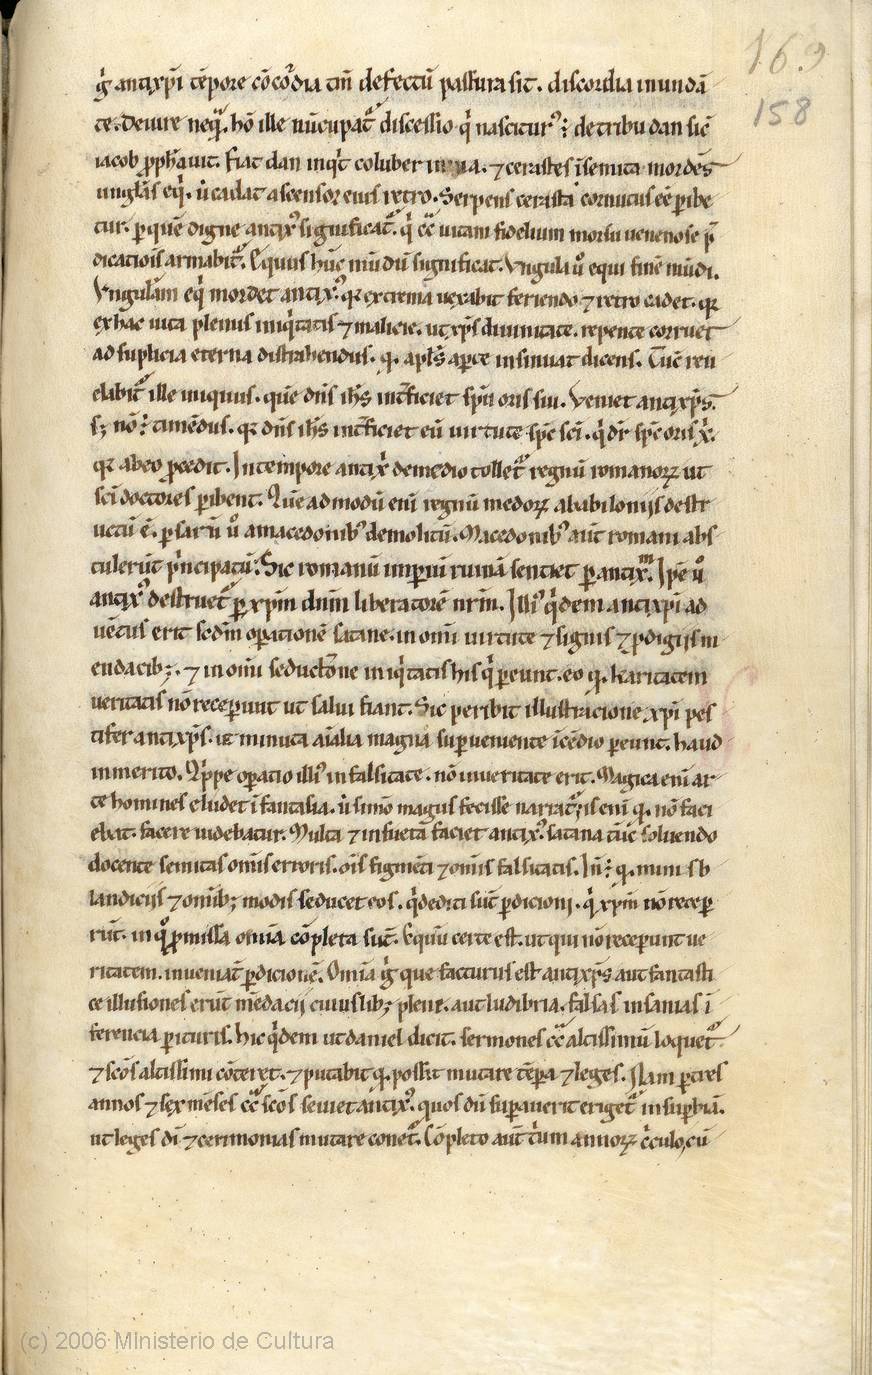 169
158
g̓ antixp̄i tēpore cōcordia tm̄ defectū passura sit. discordia inundā
te. De iure neq̄. hō ille nūcupat̄ discessio q̓ nascitur᾽: de tribu dan sic̄
iacob ꝓph̄auit. Fiat dan inq̓t coluber in uia. ⁊ cerastes ī semita mordēs
ungl̄as eq̓. ut̄ cadat ascensor eius retro. Serpens cerasta cornutus eē ꝑibe
tur. ꝑ quē digne antix᾽ significat̄. q̓ cc̄ uitam fidelium morsu uenenose p̄
dicatiōis armabit̄. Equus hūc mūdū significat. Vngula u̓ equi finē mūdi.
Vngulam eq̓ mordet antix᾽. qꝛ extrema uexabit feriendo ⁊ retro cadet. qꝛ
ex hac uita plenus iniq̓tatis ⁊ malicie. ut xp̄s diuinitate. repente corruet
ad suplicia eterna distrahendus. q. apl̄s aꝑte insinuat dicens. Tūc reu
elabit̄ ille iniquus. quē dn̄s ih̄s int̄ficiet sp̄u oris sui. Veniet antixp̄s.
sꝫ nō ÷ timēdus. qꝛ dn̄s ih̄s int̄ficiet eū uirtute sp̄c sc̄i. q̓ dr̄ sp̄c oris x̓.
qꝛ ab eo ꝓcedit. In tempore antix̓ de medio tollet̄ regnū romanoꝝ ut
sc̄i doctores ꝑibent. Quē ad modū enī regnū medoꝝ a babilonijs destr
uctū ē. ꝑsarū u̓ a macedonib᾽ demolitū. Macedonib᾽ aūt romani abs
tulerūt p̓ncipatū: Sic romanū imꝑiū ruinā sentiet ꝑ antix᾽ᵐ. Ip̄e u̓
antix᾽ destruet̄ ꝑ xp̄m dn̄m liberatorē nr̄m. Illi᾽ q̓dem antixp̄i ad
uētus erit sedm̄ oꝑationē satane. in omī uirtute ⁊ signis ⁊ ꝓdigijs m
endacibꝫ. ⁊ in omī seductōne iniq̓tatis his q̓ ꝑeunt. eo q. karitatem
ueritatis nō receꝑunt ut salui fiant. Sic peribit illustracione xp̄i pes
tifer antixp̄s. ut minuta aīalia magna suꝑueniente īcēdio ꝑeunt. haud
inmerito. Q̓ppe oꝑatio illi᾽ in falsitate. nō in ueritate erit. Magica enī ar
te homines eludet ī fantasia. ut̄ simō magus fecisse narrat̄. is enī q. nō faci
ebat. facere uidebatur. Multa ⁊ infueta faciet antix᾽. satana tūc soluendo
docente semitas omīs erroris. oīs figmēti ⁊ omīs falsitatis. In̄÷ q. nimis b
landicijs ⁊ omībꝫ modis seducet eos. q̓ dediti sūt ꝑdicioni. q̓ xp̄m nō receꝑ
rūt. in quo ꝓmissa omīa cōpleta sūt. Equū certe est. ut qui nō receꝑunt ue
ritatem. inueniāt ꝑdicionē. Omīa g̓ que facturus est antixp̄s aut fantasti
ce illusiones erūt mēdacij cuiuslibꝫ plene. aut ludibria. falsas insanias ī
ferencia ꝑituris. hic q̓dem ut daniel dicit. sermones cc̄ altissimū loquet̄
⁊ sc̄os altissimi cōteret. ⁊ putabit q. possit mutare tēꝑa ⁊ leges. Nam ꝑ tres
annos ⁊ sex mēses cc̄ sc̄os seuiet antix᾽. quos dū suꝑauerit eriget̄ in suꝑbiā.
ut leges dī ⁊ cerimonias mutare conet̄. Cōpleto aūt t̓um annoꝝ c̓culo, cū
(c) 2006 Ministerio de Cultura